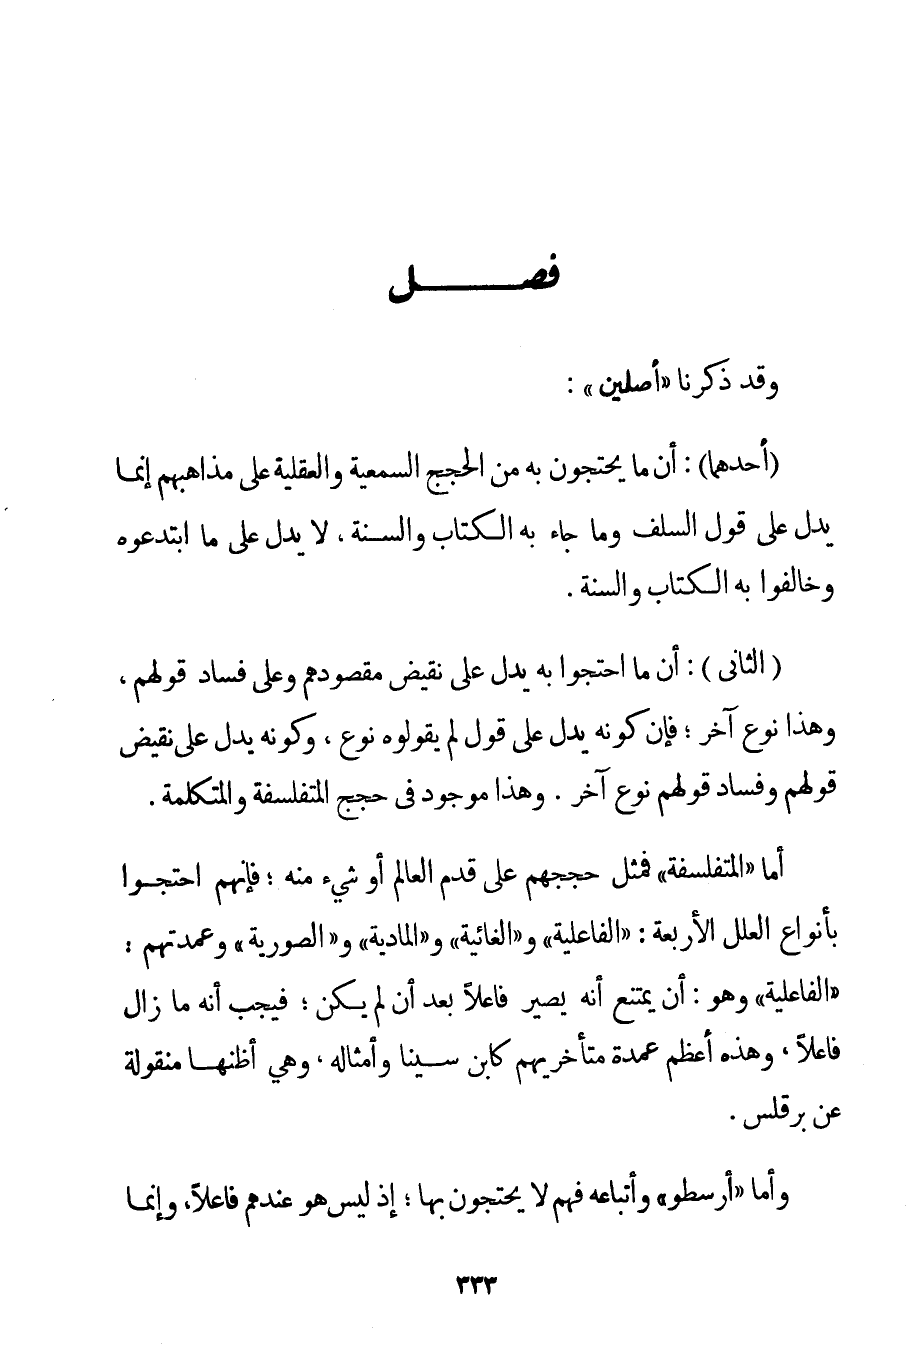 فصـــــــل
وقد ذكرنا «أصلين» :
(أحدهما) : أن ما يحتجون به من الحجج السمعية والعقلية على مذاهبهم إنمـا
يدل على قول السلف وما جاء به الـكتاب والسـنة ، لا يدل على ما ابتدعوه
وخالفوا به الـكتاب والسنة .
( الثانى ) : أن ما احتجوا به يدل على نقيض مقصودهم وعلى فساد قولهم ،
وهذا نوع آخر ؛ فإن كونه يدل على قول لم يقولوه نوع ، وكونه يدل على نقيض
قولهم وفساد قولهم نوع آخر . وهذا موجود فى حجج المتفلسفة والمتكلمة .
أما «المتفلسفة» فمثل حججهم على قدم العالم أو شيء منه ؛ فإنهم احتجـوا
بأنواع العلل الأربعة : «الفاعلية» و«الغائية» و«المادية» و« الصورية » وعمدتهم :
«الفاعلية» وهو : أن يمتنع أنه يصير فاعلاً بعد أن لم يـكن ؛ فيجب أنه ما زال
فاعلاً ، وهذه أعظم عمدة متأخريهم كابن سـينا وأمثاله ، وهي أظنهـا منقولة
عن برقلس .
وأما «أرسطو» وأتباعه فهم لا يحتجون بها ؛ إذ ليس هو عندهم فاعلاً، وإنمـا
٣٣٣